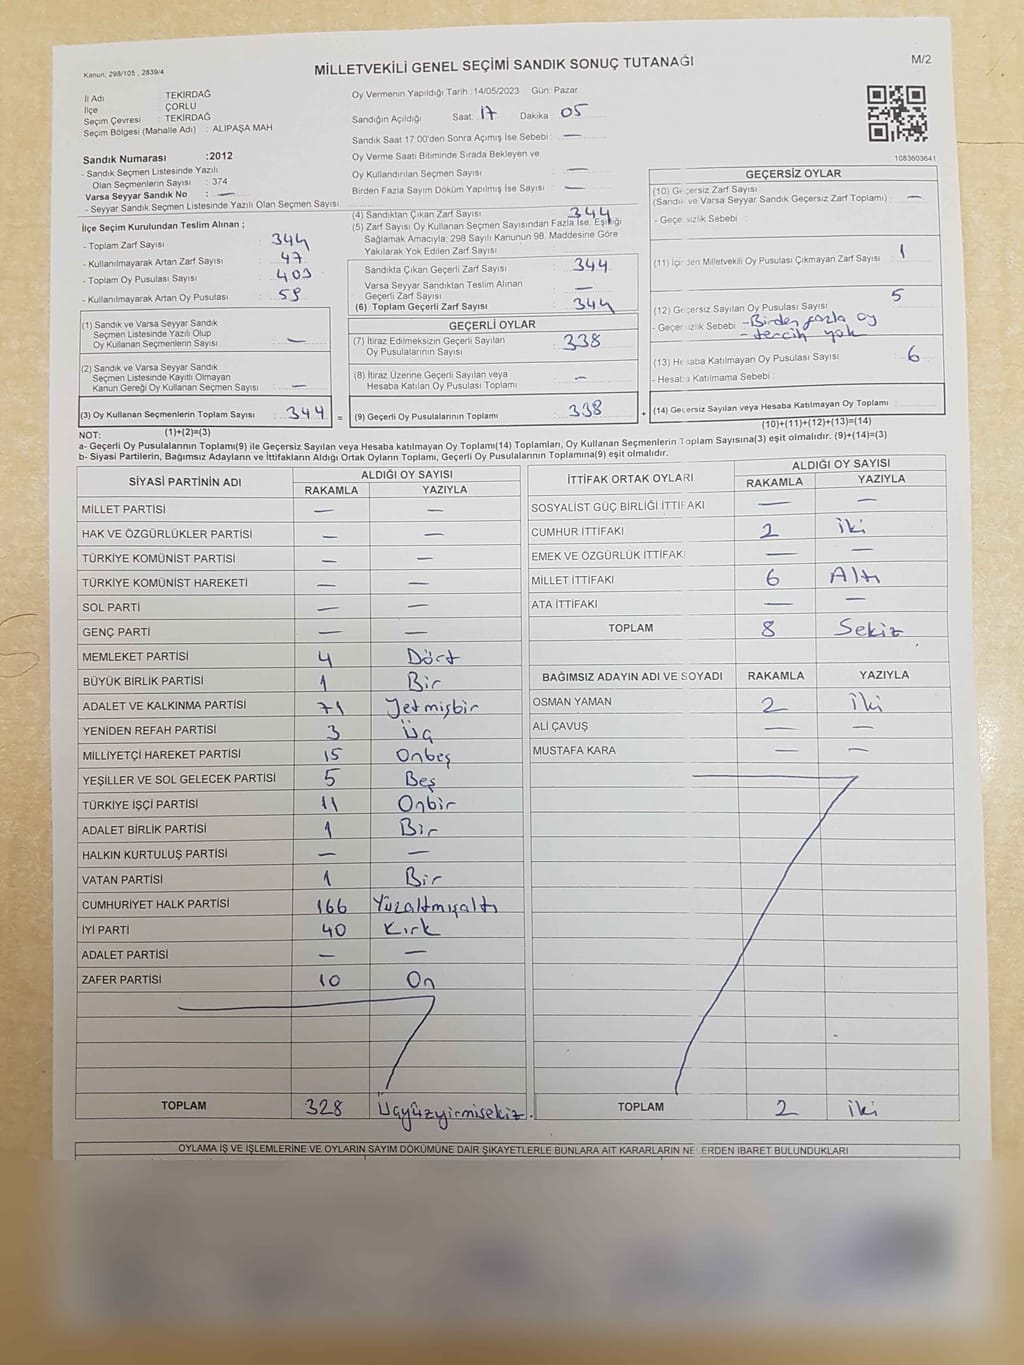 Kanun, 298/105 , 2839/4
MİLLETVEKİLİ GENEL SEÇİMİ SANDIK SONUÇ TUTANAĞI
M/2
İl Adı TEKİRDAĞ
İlçe ÇORLU
Seçim Çevresi : TEKİRDAĞ
Seçim Bölgesi (Mahalle Adı) : ALİPAŞA MAH
Sandık Numarası :2012
- Sandık Seçmen Listesinde Yazılı
Olan Seçmenlerin Sayısı : 374
Varsa Seyyar Sandık No : —
- Seyyar Sandık Seçmen Listesinde Yazılı Olan Seçmen Sayısı:
Oy Vermenin Yapıldığı Tarih :14/05/2023 Gün: Pazar
Sandığın Açıldığı Saat: 17 Dakika : 05
Sandık Saat 17:00'den Sonra Açımış İse Sebebi : —
Oy Verme Saati Bitiminde Sırada Bekleyen ve
Oy Kullandırılan Seçmen Sayısı : —
Birden Fazla Sayım Döküm Yapılmış İse Sayısı : —
1083603641
İlçe Seçim Kurulundan Teslim Alınan ;
- Toplam Zarf Sayısı : 344
- Kullanılmayarak Artan Zarf Sayısı : 47
- Toplam Oy Pusulası Sayısı : 403
- Kullanılmayarak Artan Oy Pusulası : 59
(1) Sandık ve Varsa Seyyar Sandık
Seçmen Listesinde Yazılı Olup
Oy Kullanan Seçmenlerin Sayısı : —
(2) Sandık ve Varsa Seyyar Sandık
Seçmen Listesinde Kayıtlı Olmayan
Kanun Gereği Oy Kullanan Seçmen Sayısı : —
(3) Oy Kullanan Seçmenlerin Toplam Sayısı : 344 =
(1)+(2)=(3)
(4) Sandıktan Çıkan Zarf Sayısı : 344
(5) Zarf Sayısı Oy Kullanan Seçmen Sayısından Fazla İse, Eşitliği
Sağlamak Amacıyla; 298 Sayılı Kanunun 98. Maddesine Göre
Yakılarak Yok Edilen Zarf Sayısı :
Sandıkta Çıkan Geçerli Zarf Sayısı : 344
Varsa Seyyar Sandıktan Teslim Alınan
Geçerli Zarf Sayısı : —
(6) Toplam Geçerli Zarf Sayısı : 344
GEÇERLİ OYLAR
(7) İtiraz Edilmeksizin Geçerli Sayılan
Oy Pusulalarının Sayısı : 338
(8) İtiraz Üzerine Geçerli Sayılan veya
Hesaba Katılan Oy Pusulası Toplamı : —
(9) Geçerli Oy Pusulalarının Toplamı : 338 +
GEÇERSİZ OYLAR
(10) Geçersiz Zarf Sayısı
(Sandık ve Varsa Seyyar Sandık Geçersiz Zarf Toplamı) : —
- Geçersizlik Sebebi :
(11) İçinden Milletvekili Oy Pusulası Çıkmayan Zarf Sayısı : 1
(12) Geçersiz Sayılan Oy Pusulası Sayısı : 5
- Geçersizlik Sebebi : -Birden fazla oy
- tercih yok
(13) Hesaba Katılmayan Oy Pusulası Sayısı : 6
- Hesaba Katılmama Sebebi :
(14) Geçersiz Sayılan veya Hesaba Katılmayan Oy Toplamı :
(10)+(11)+(12)+(13)=(14)
NOT:
a- Geçerli Oy Pusulalarının Toplamı(9) ile Geçersiz Sayılan veya Hesaba katılmayan Oy Toplamı(14) Toplamları, Oy Kullanan Seçmenlerin Toplam Sayısına(3) eşit olmalıdır. (9)+(14)=(3)
b- Siyasi Partilerin, Bağımsız Adayların ve İttifakların Aldığı Ortak Oyların Toplamı, Geçerli Oy Pusulalarının Toplamına(9) eşit olmalıdır.
SİYASİ PARTİNİN ADI ALDIĞI OY SAYISI
RAKAMLA YAZIYLA
MİLLET PARTİSİ — —
HAK VE ÖZGÜRLÜKLER PARTİSİ — —
TÜRKİYE KOMÜNİST PARTİSİ — —
TÜRKİYE KOMÜNİST HAREKETİ — —
SOL PARTİ — —
GENÇ PARTİ — —
MEMLEKET PARTİSİ 4 Dört
BÜYÜK BİRLİK PARTİSİ 1 Bir
ADALET VE KALKINMA PARTİSİ 71 Yetmişbir
YENİDEN REFAH PARTİSİ 3 Üç
MİLLİYETÇİ HAREKET PARTİSİ 15 Onbeş
YEŞİLLER VE SOL GELECEK PARTİSİ 5 Beş
TÜRKİYE İŞÇİ PARTİSİ 11 Onbir
ADALET BİRLİK PARTİSİ 1 Bir
HALKIN KURTULUŞ PARTİSİ — —
VATAN PARTİSİ 1 Bir
CUMHURİYET HALK PARTİSİ 166 Yüzaltmışaltı
İYİ PARTİ 40 Kırk
ADALET PARTİSİ — —
ZAFER PARTİSİ 10 On
TOPLAM 328 Üçyüzyirmisekiz.
İTTİFAK ORTAK OYLARI ALDIĞI OY SAYISI
RAKAMLA YAZIYLA
SOSYALİST GÜÇ BİRLİĞİ İTTİFAKI — —
CUMHUR İTTİFAKI 2 İki
EMEK VE ÖZGÜRLÜK İTTİFAKI — —
MİLLET İTTİFAKI 6 Altı
ATA İTTİFAKI — —
TOPLAM 8 Sekiz
BAĞIMSIZ ADAYIN ADI VE SOYADI RAKAMLA YAZIYLA
OSMAN YAMAN 2 İki
ALİ ÇAVUŞ — —
MUSTAFA KARA — —
TOPLAM 2 İki
OYLAMA İŞ VE İŞLEMLERİNE VE OYLARIN SAYIM DÖKÜMÜNE DAİR ŞİKAYETLERLE BUNLARA AİT KARARLARIN NELERDEN İBARET BULUNDUKLARI